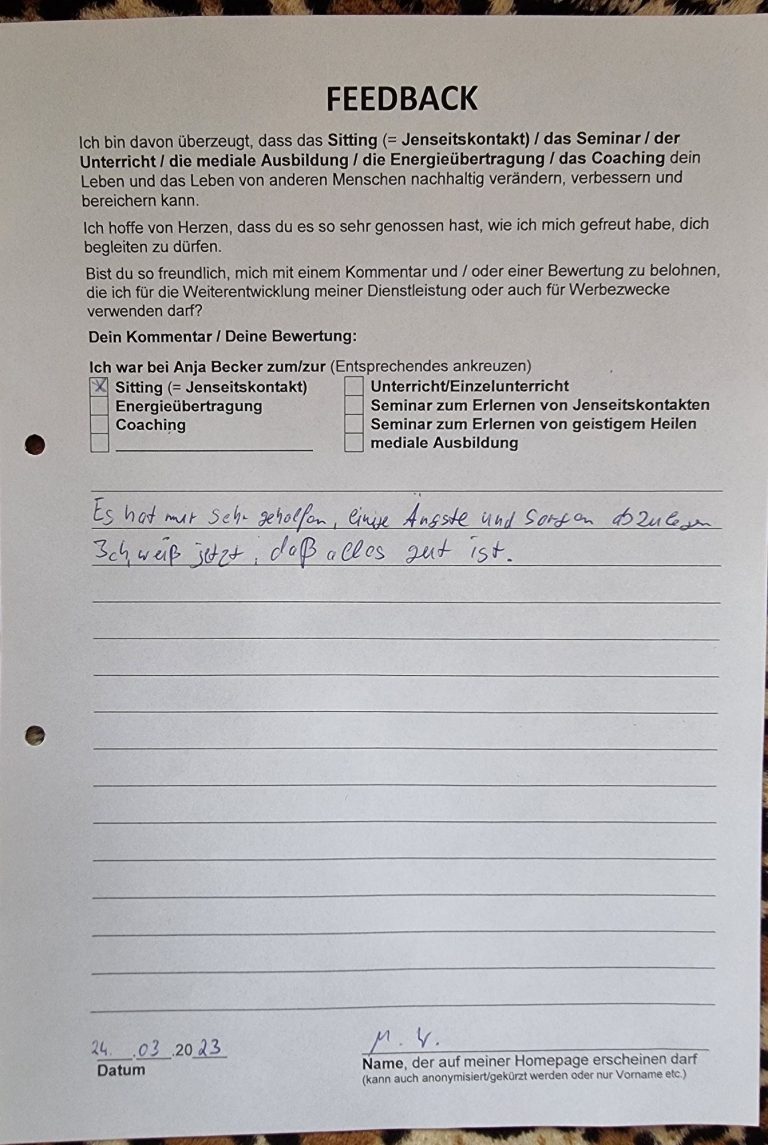 FEEDBACK
Ich bin davon überzeugt, dass das Sitting (= Jenseitskontakt) / das Seminar / der
Unterricht / die mediale Ausbildung / die Energieübertragung / das Coaching dein
Leben und das Leben von anderen Menschen nachhaltig verändern, verbessern und
bereichern kann.
Ich hoffe von Herzen, dass du es so sehr genossen hast, wie ich mich gefreut habe, dich
begleiten zu dürfen.
Bist du so freundlich, mich mit einem Kommentar und / oder einer Bewertung zu belohnen,
die ich für die Weiterentwicklung meiner Dienstleistung oder auch für Werbezwecke
verwenden darf?
Dein Kommentar / Deine Bewertung:
Ich war bei Anja Becker zum/zur (Entsprechendes ankreuzen)
X Sitting (= Jenseitskontakt) Unterricht/Einzelunterricht
Energieübertragung Seminar zum Erlernen von Jenseitskontakten
Coaching Seminar zum Erlernen von geistigem Heilen
mediale Ausbildung
Es hat mir sehr geholfen, einige Ängste und Sorgen abzulegen
Ich weiß jetzt, daß alles gut ist.
24.03.2023 M. V.
Datum Name, der auf meiner Homepage erscheinen darf
(kann auch anonymisiert/gekürzt werden oder nur Vorname etc.)